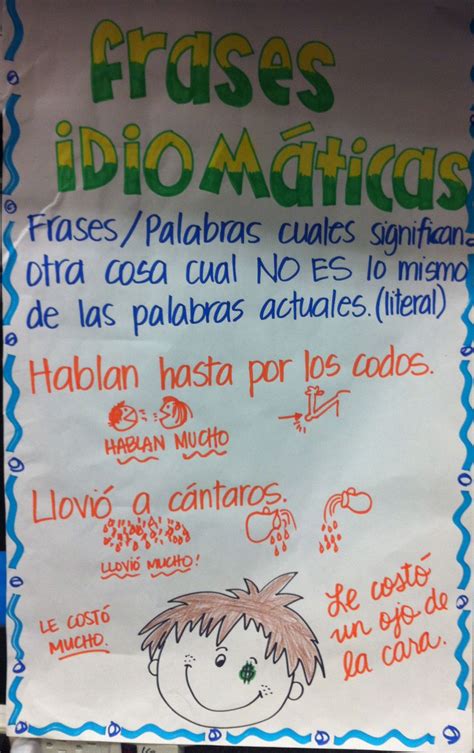 frases
iDioMáticas
Frases/Palabras cuales significan
otra cosa cual NO ES lo mismo
de las palabras actuales. (literal)
Hablan hasta por los codos.
HABLAN MUCHO
Llovió a cántaros.
LLOVIÓ MUCHO!
LE COSTÓ
MUCHO.
Le costó
un ojo de
la cara.
$